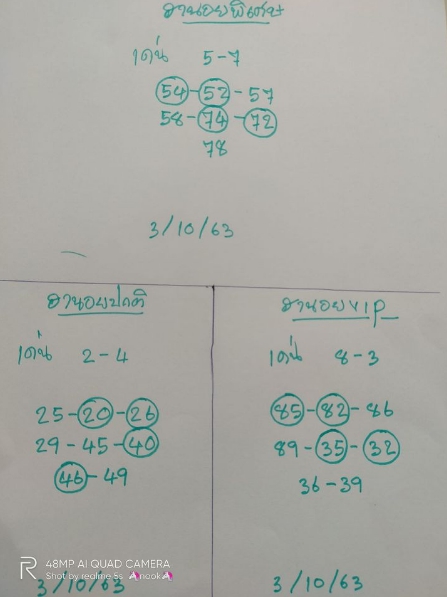 ฮานอยพิเศษ
เด่น 5-7
54-52-57
58-74-72
78
3/10/63
ฮานอยปกติ
เด่น 2-4
25-20-26
29-45-40
46-49
3/10/63
ฮานอยVIP
เด่น 8-3
85-82-86
89-35-32
36-39
3/10/63
48MP AI QUAD CAMERA
Shot by realme 5s nook